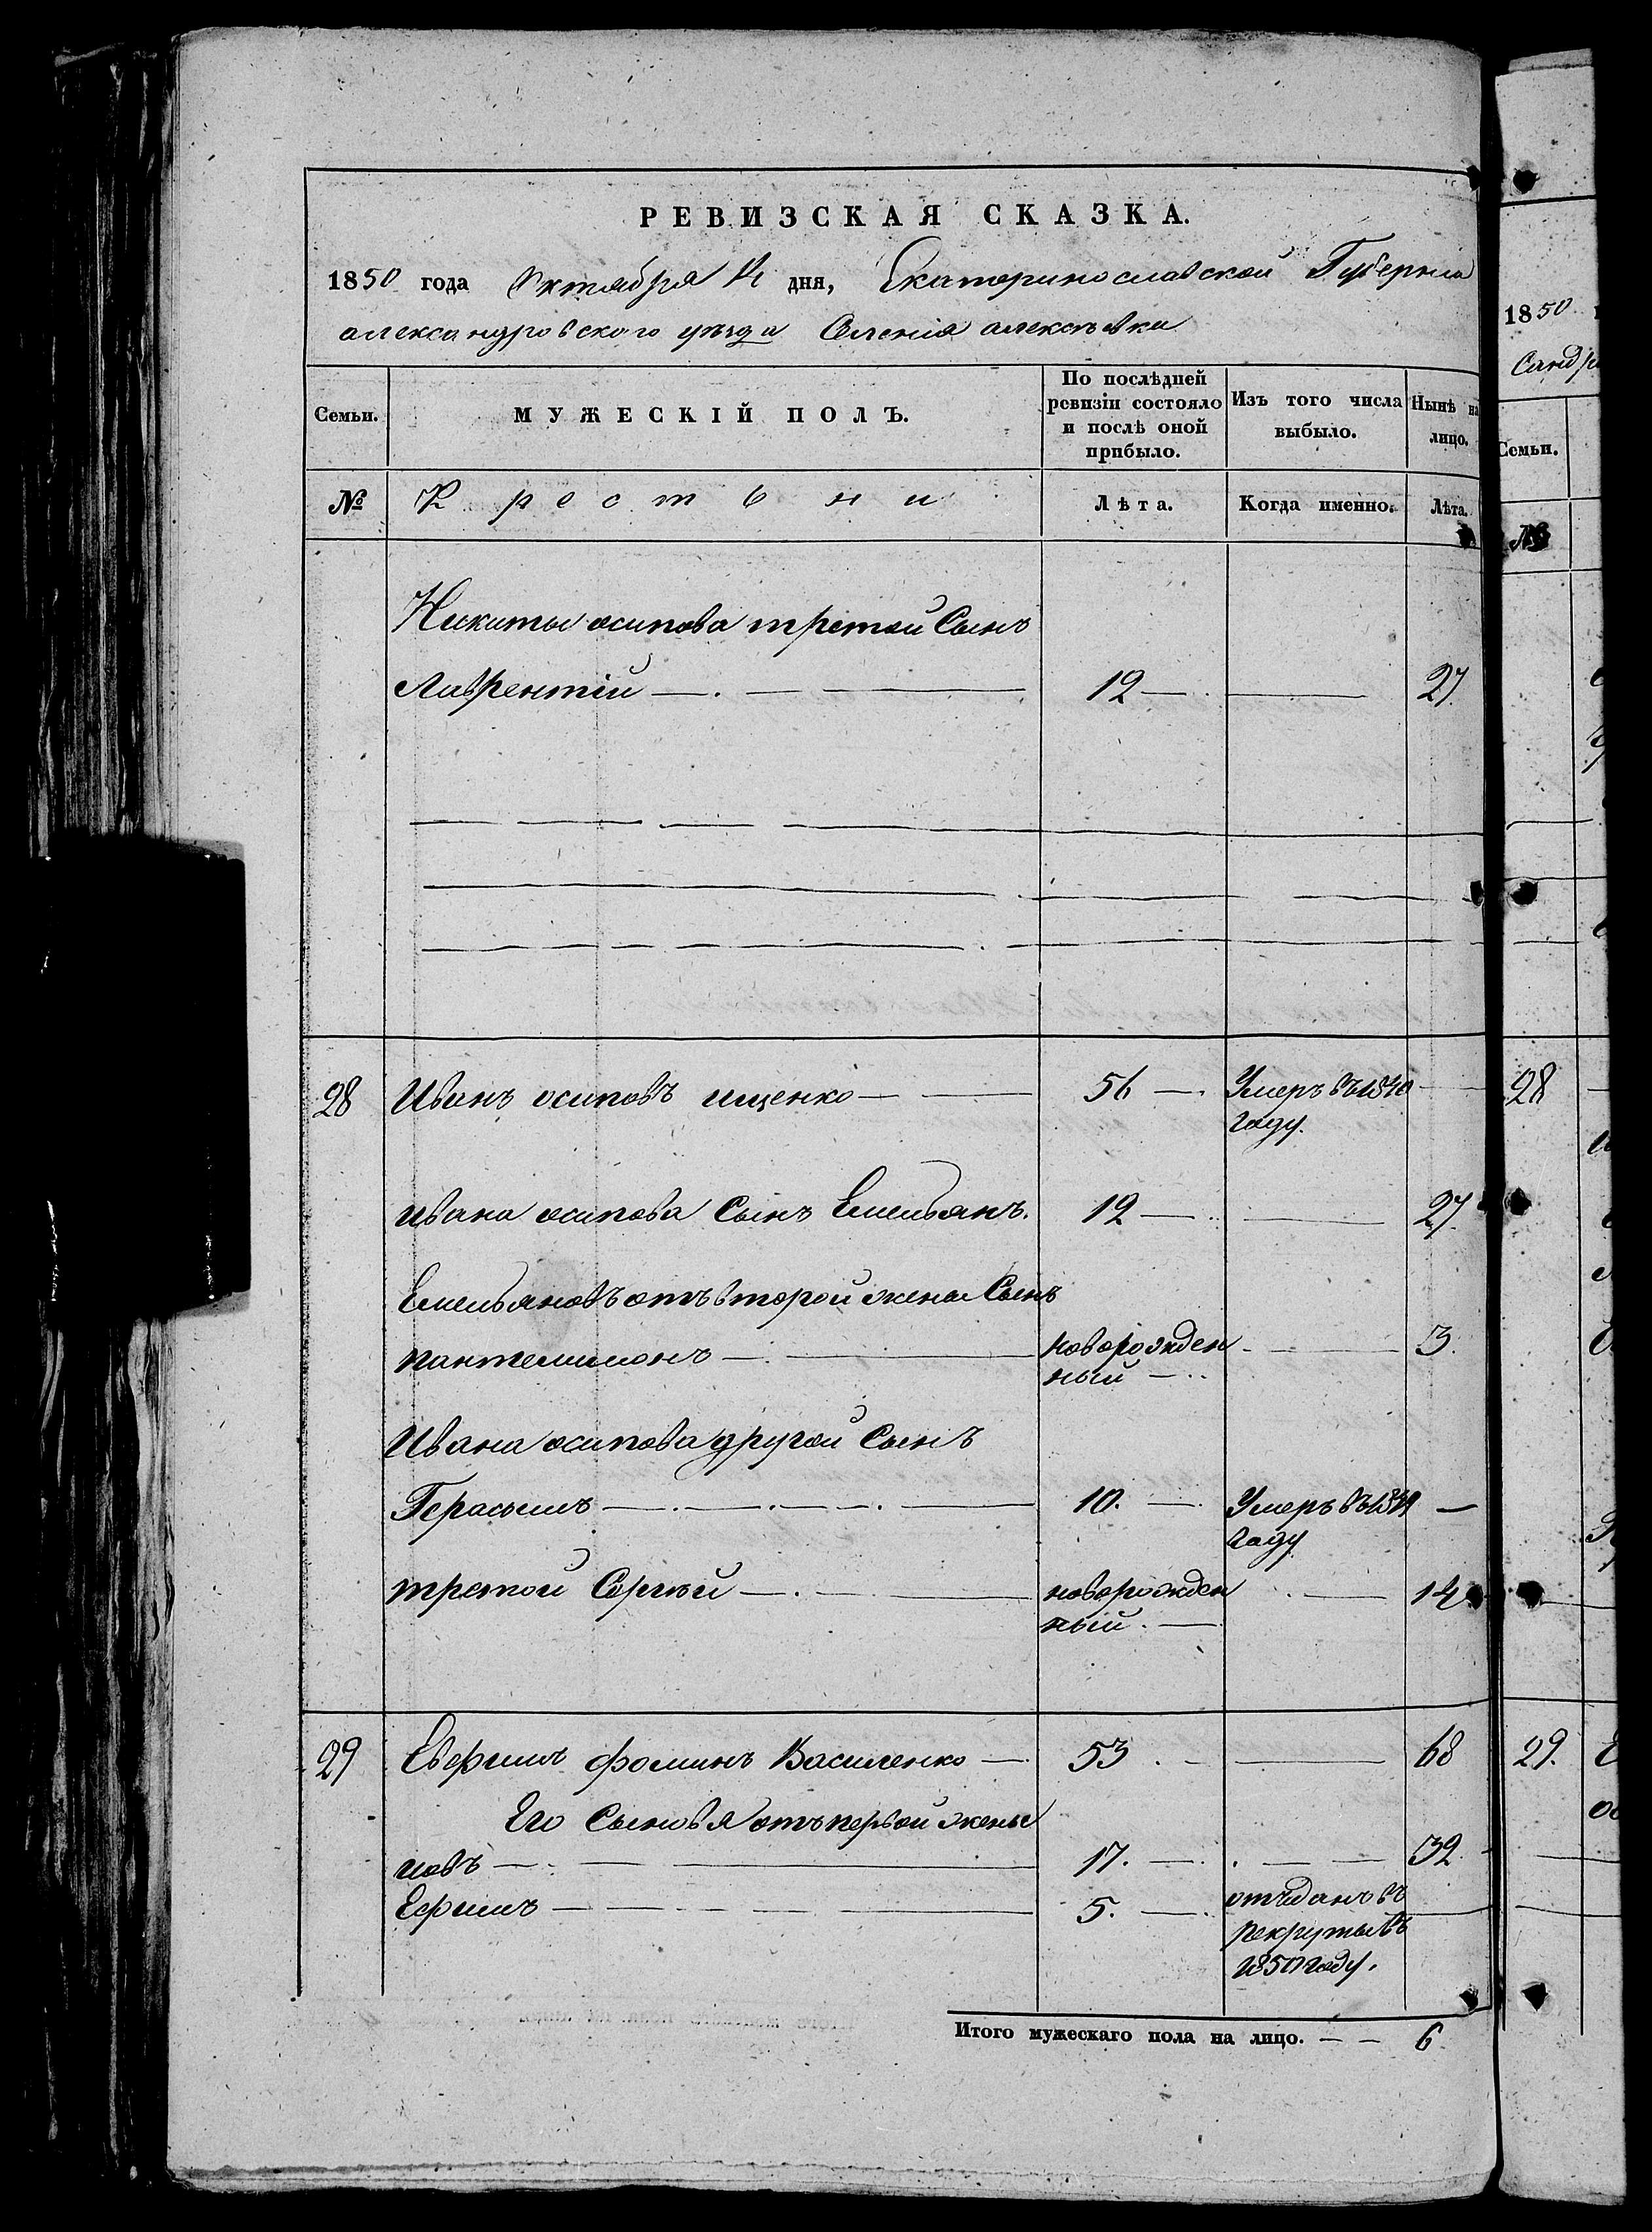 РЕВИЗСКАЯ СКАЗКА.
1850 года Октября 14 дня, Екатеринославской Губерніи
александровского уѣзда Селенія алексѣевки
Семьи.
МУЖЕСКІЙ ПОЛЪ.
По послѣдней ревизіи состояло и послѣ оной прибыло.
Изъ того числа выбыло.
Нынѣ на лицо.
№ Крестьяни Лѣта. Когда именно. Лѣта.
Никиты осипова третой Сынъ
Лаврентій — 12 — — 27.
28 Иванъ осиповъ ищенко — 56 — Умеръ въ 1840 —
году.
ивана осипова Сынъ Емельянъ. 12 — — 27.
Емельяновъ отъ второй жены Сынъ
пантелимонъ — новорожден — 3.
ный —
Ивана осипова другой Сынъ
Герасимъ — 10. — Умеръ въ —
году
третой Сергѣй — новорожден — 14
ный. —
29 Евфимъ фоминъ Василенко — 53 — — 68
Его Сыновья отъ первой жены
иовъ — 17. — — 32.
Ефимъ — 5. — отъданъ въ
рекруты въ
1850 году.
Итого мужескаго пола на лицо. — — 6
1850
Санд
Семьи.
№
28
29.